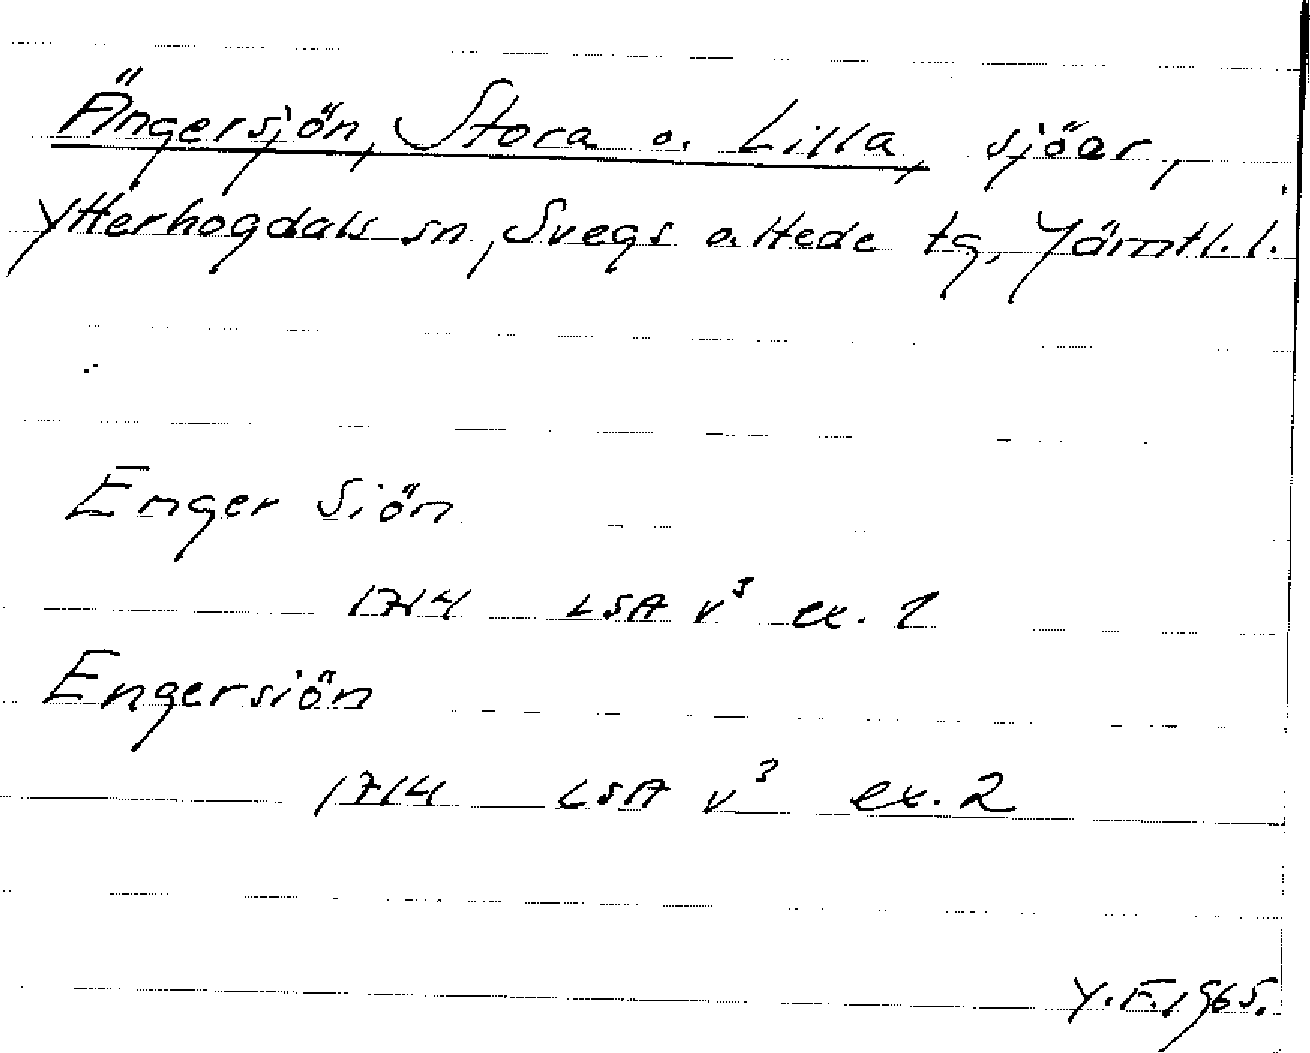 Ängersjön, Stora o. Lilla, sjöar,
Ytterhogdals sn, Svegs o. Hede tg, Jämtl. l.
Enger Siön
1714 LSA v³ ex. 1
Engersiön
1714 LSA v³ ex. 2
Y.F. 1965.